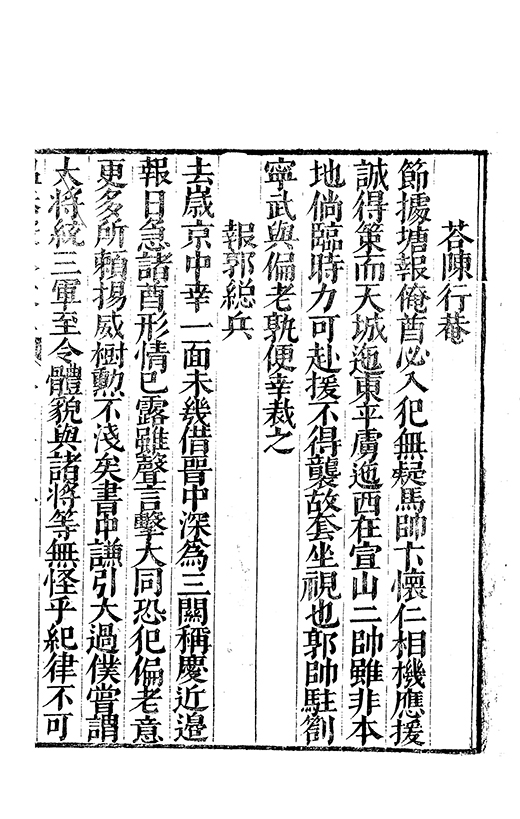 荅陳行菴
節據塘報俺酋必入犯無疑馬帥卞懷仁相機應援
誠得策而天城迤東平虜迤西在宣山二帥雖非本
地倘臨時力可赴援不得襲故套坐視也郭帥駐劄
寧武與偏老孰便幸裁之
報郭緫兵
去歲京中幸一面未幾借晋中深為三關稱慶近邉
報日急諸酋形情巳露雖聲言擊大同恐犯偏老意
更多所賴揚威樹勲不淺矣書中謙引大過僕嘗謂
大将統三軍至令體貌與諸将等無怪乎紀律不可